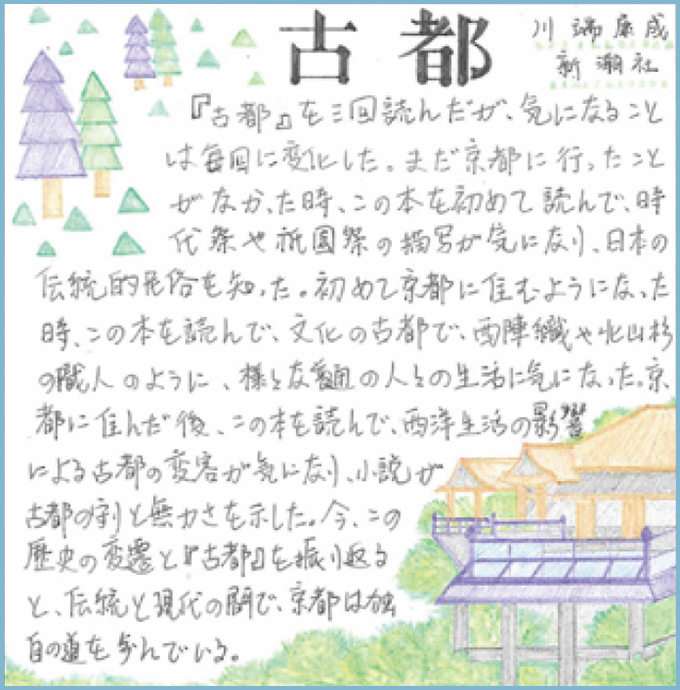 古都
川端康成
新潮社
『古都』を三回読んだが、気になること
は毎回に変化した。まだ京都に行ったこと
がなかった時、この本を初めて読んで、時
代祭や祇園祭の描写が気になり、日本の
伝統的民俗を知った。初めて京都に住むようになった
時、この本を読んで、文化の古都で、西陣織や北山杉
の職人のように、様々な範囲の人々の生活に気になった。京
都に住んだ後、この本を読んで、西洋生活の影響
による古都の変容が気になり、小説が
古都の と無力さを示した。今、この
歴史の変遷と『古都』を振り返る
と、伝統と現代の間で、京都は独
自の道を歩んでいる。